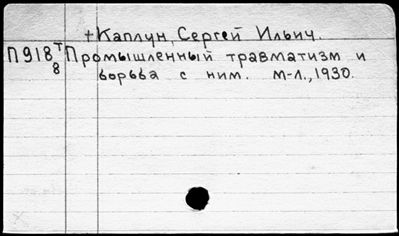 +Каплун, Сергей Ильич.
П918 Т/8 Промышленный травматизм и
борьба с ним. М-Л., 1930.